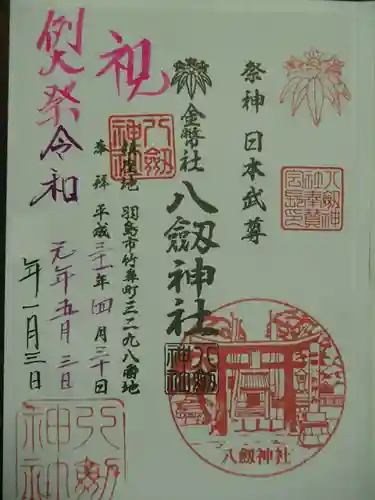 祭神 日本武尊
金幣社
八劔神社
鎮座地 羽島市竹鼻町三二九八番地
奉拝 平成三十一年四月三十日
祝
例祭
令和
元年五月三日
年一月三日
八劔神社
八劔神社
八劔神社
八劔神社